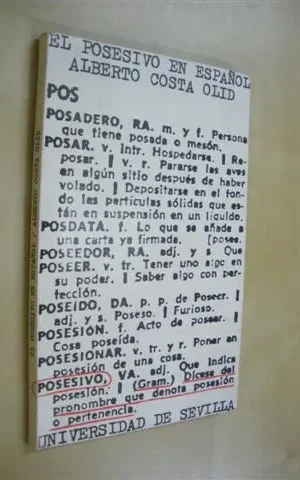 EL POSESIVO EN ESPAÑOL
ALBERTO COSTA OLID
POS
POSADERO, RA. m. y f. Persona
que tiene posada o mesón.
POSAR. v. Intr. Hospedarse. | Re-
posar. | v. r. Pararse las aves
en algún sitio después de haber
volado. | Depositarse en el fon-
do las partículas sólidas que es-
tán en suspensión en un líquido.
POSDATA. f. Lo que se añade a
una carta ya firmada. [posee.
POSEEDOR, RA. adj. y s. Que
POSEER. v. tr. Tener uno algo en
su poder. | Saber algo con per-
fección.
POSEÍDO, DA. p. p. de Poseer. |
adj. y s. Poseso. | Furioso.
POSESIÓN. f. Acto de poseer. |
Cosa poseída.
POSESIONAR. v. tr. y r. Poner en
posesión de una cosa.
POSESIVO, VA. adj. Que indica
posesión. | (Gram.) Dícese del
pronombre que denota posesión
o pertenencia.
UNIVERSIDAD DE SEVILLA
EL POSESIVO EN ESPAÑOL / ALBERTO COSTA OLID